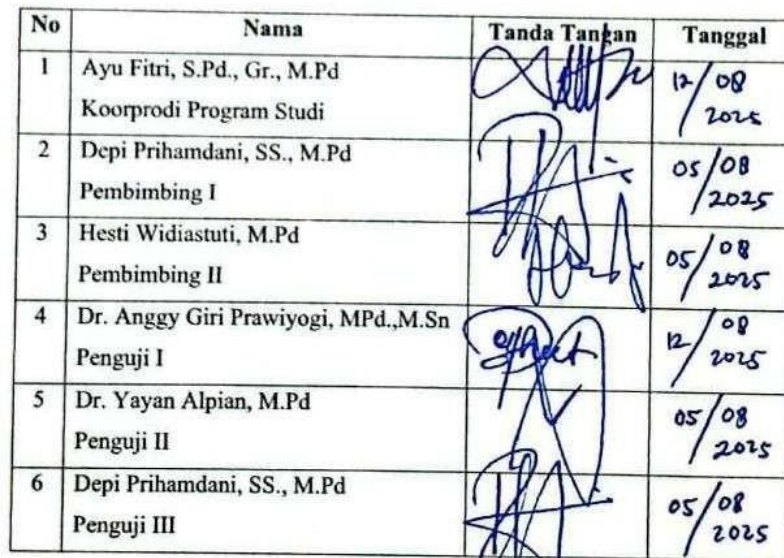 No Nama Tanda Tangan Tanggal
1 Ayu Fitri, S.Pd., Gr., M.Pd 12/08
Koorprodi Program Studi 2025
2 Depi Prihamdani, SS., M.Pd 05/08
Pembimbing I 2025
3 Hesti Widiastuti, M.Pd 05/08
Pembimbing II 2025
4 Dr. Anggy Giri Prawiyogi, MPd.,M.Sn 12/08
Penguji I 2025
5 Dr. Yayan Alpian, M.Pd 05/08
Penguji II 2025
6 Depi Prihamdani, SS., M.Pd 05/08
Penguji III 2025